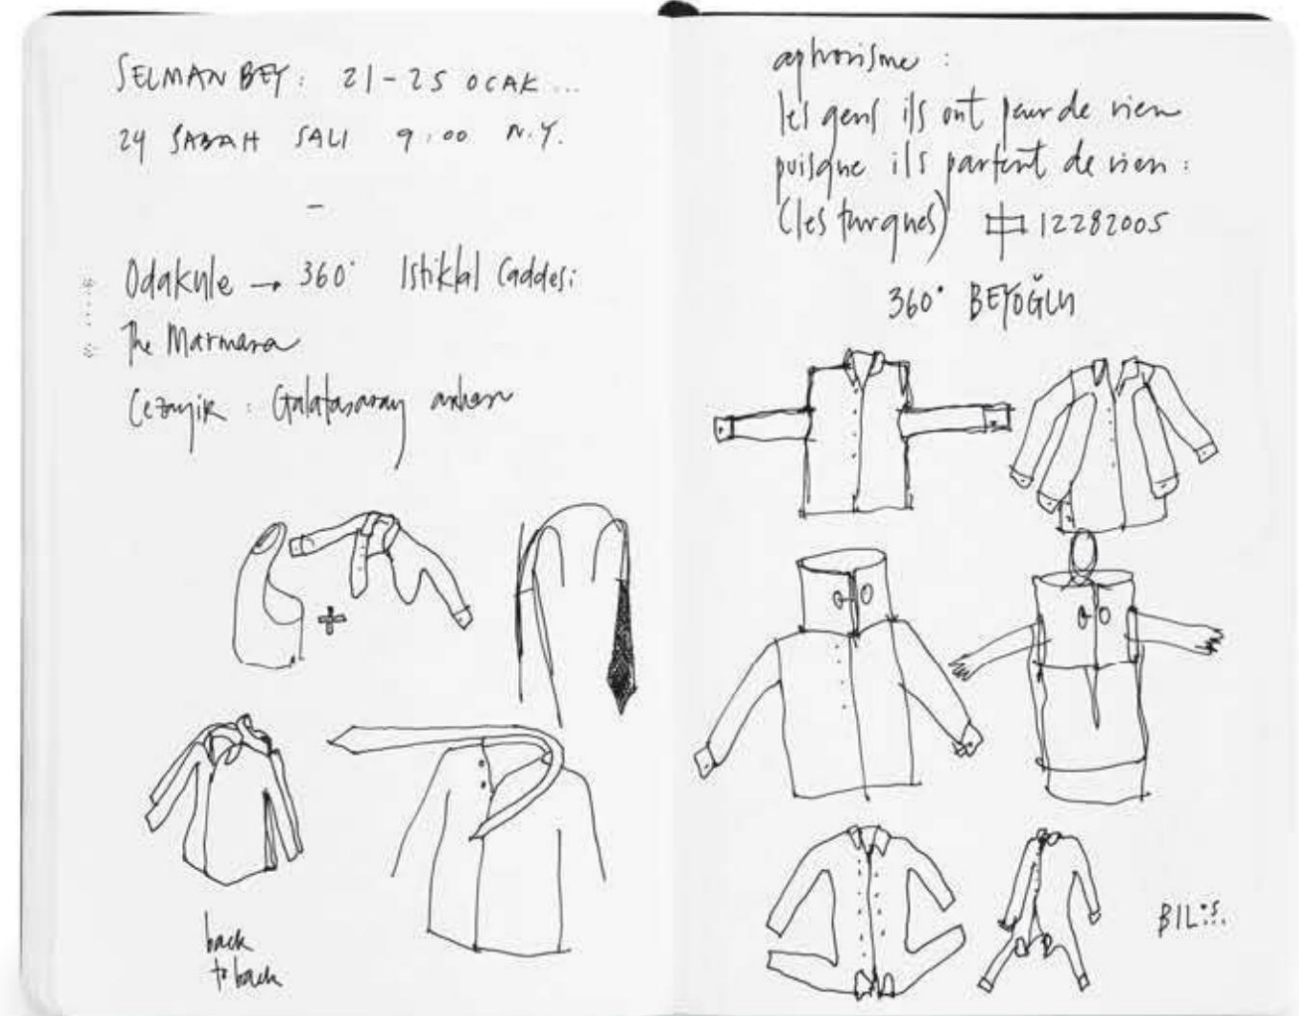 SELMAN BEY: 21-25 OCAK...
24 SABAH SALI 9:00 N.Y.
–
Odakule → 360° Istiklal Caddesi
The Marmara
Cezayir : Galatasaray
aphorisme :
les gens ils ont peur de rien
puisque ils partent de rien :
(les turques) 12282005
360° BEYOĞLU
back
to back